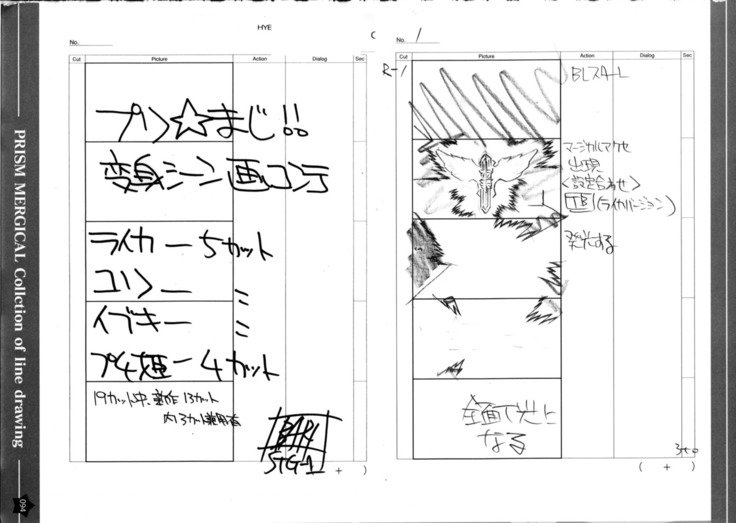 HYE
No.
Cut Picture Action Dialog Sec
プリ☆まじ!!
変身シーン画コンテ
ライカ ー 5カット
コリン ー 〃
イブキ ー 〃
プチ姫 ー 4カット
19カット中、新作13カット
( + )
No. 1
Cut Picture Action Dialog Sec
R-1
BLスタート
マージカルマクセ
出現
<設定合わせ>
T.B(ライカバージョン)
発光する
全面で光に
なる
3+0
( + )
PRISM MERGICAL Collection of line drawing
094